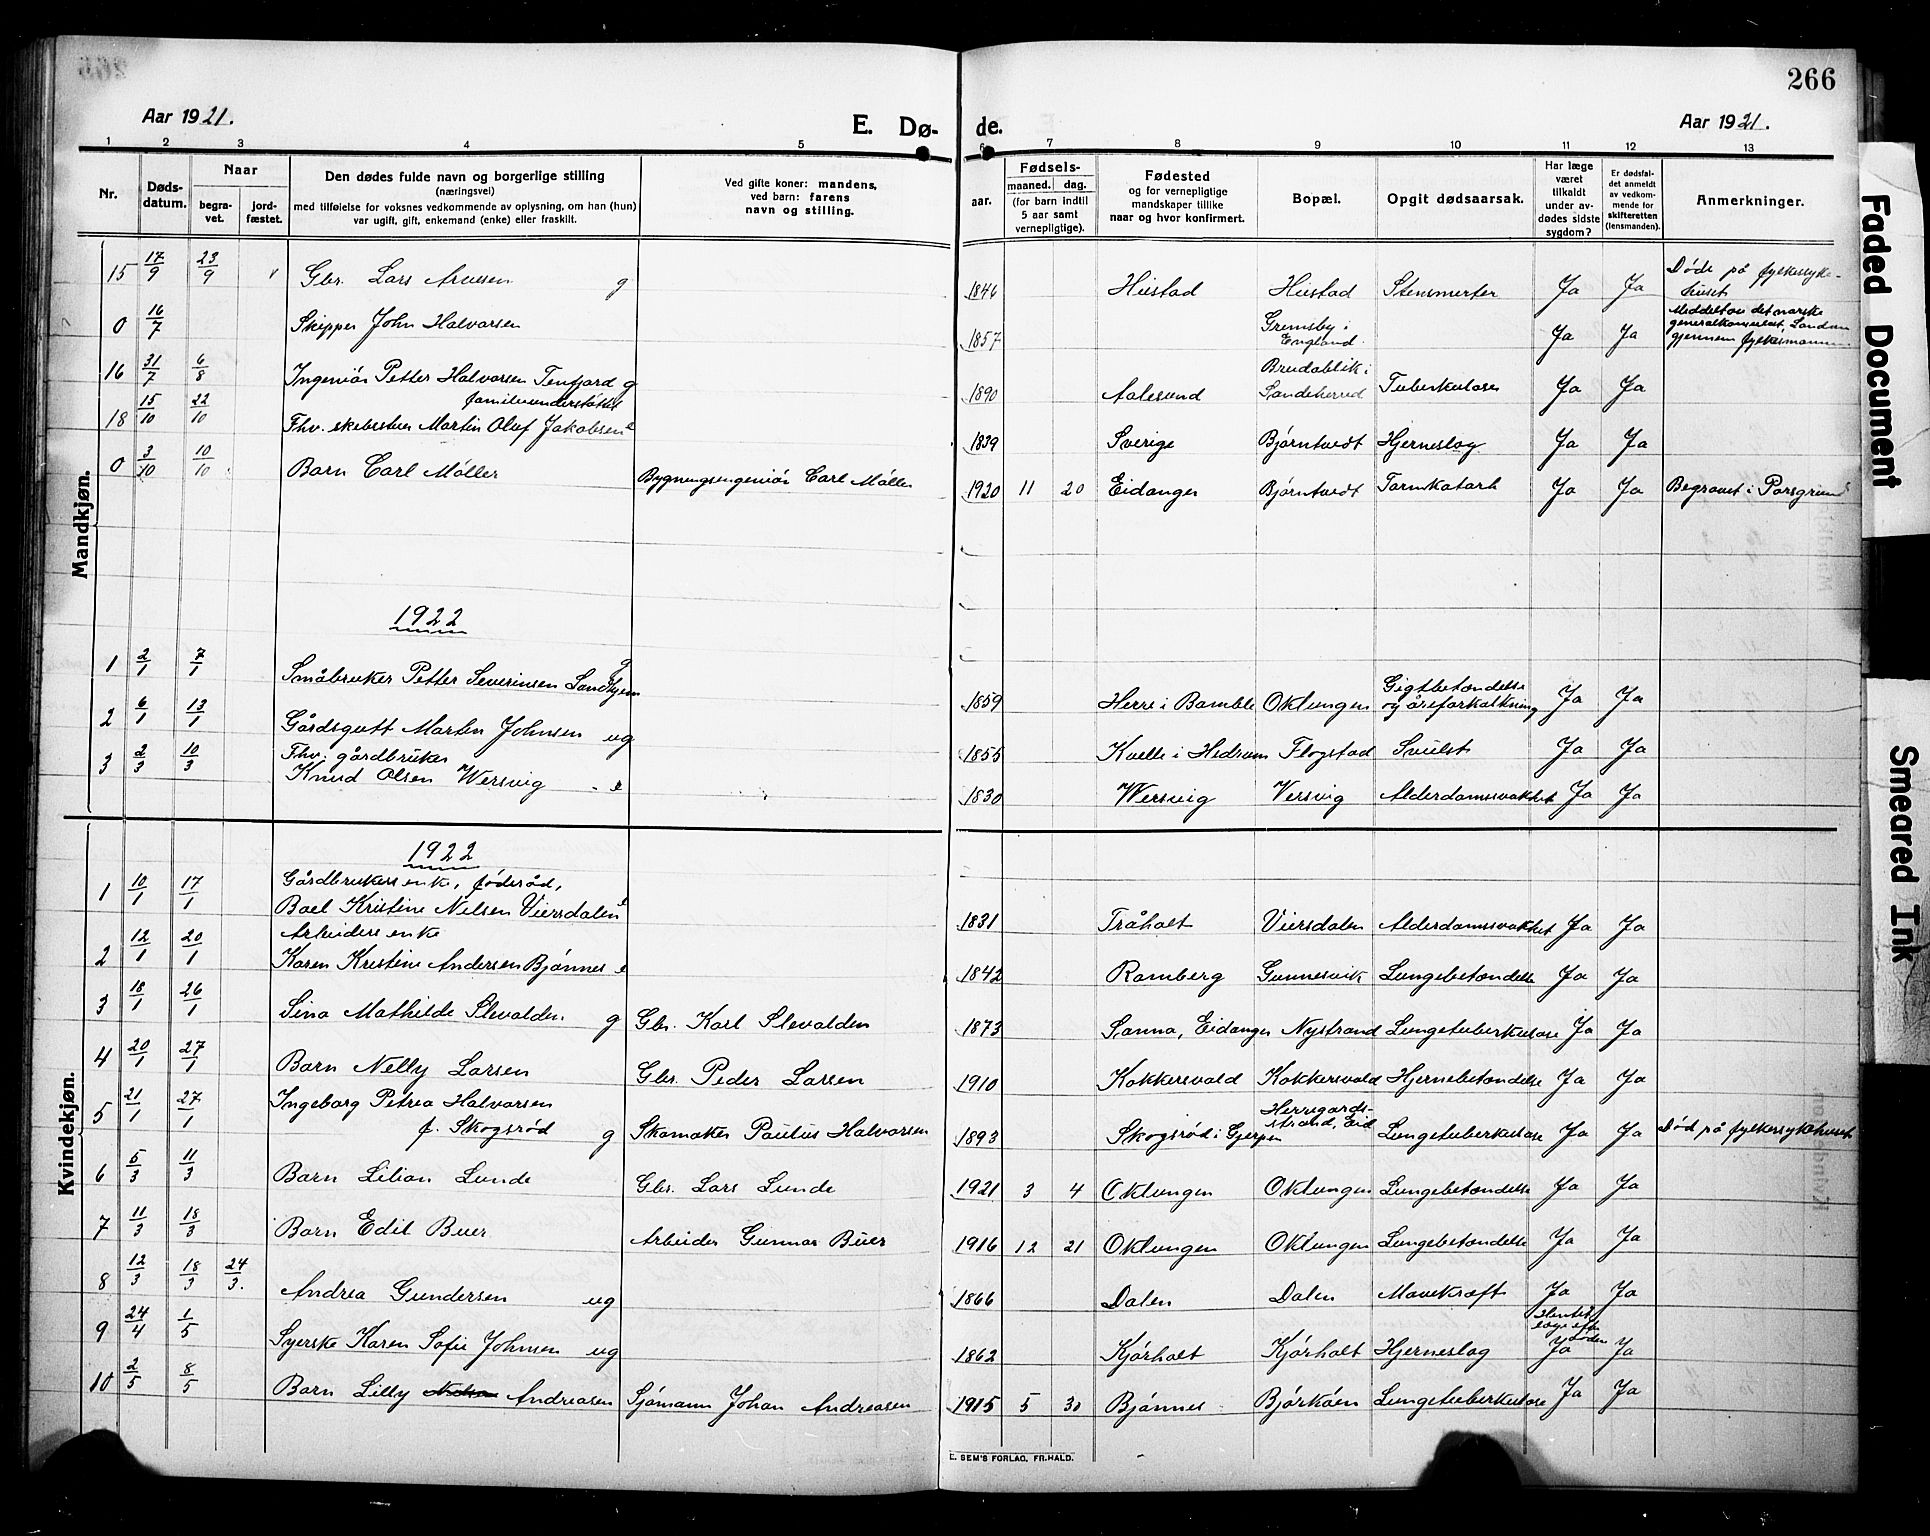 266
Aar 1921. E. Dø- de. Aar 1921.
1 2 3 4 5 6 7 8 9 10 11 12 13
Nr. Døds-datum. Naar begra-vet. jord-fæstet. Den dødes fulde navn og borgerlige stilling (næringsvei) med tilføielse for voksnes vedkommende av oplysning, om han (hun) var ugift, gift, enkemand (enke) eller fraskilt. Ved gifte koner: mandens, ved barn: farens navn og stilling. aar. Fødsels- maaned. dag. (for barn indtil 5 aar samt vernepligtige). Fødested og for vernepligtige mandskaper tillike naar og hvor konfirmert. Bopæl. Opgit dødsaarsak. Har læge været tilkaldt under av-dødes sidste sygdom? Er dødsfal-det anmeldt av vedkom-mende for skifteretten (lensmanden). Anmerkninger.
Mandkjøn.
15 17/9 23/9 Gbr. Lars Arvesen g 1846 Hustad Hustad Stensmerter Ja Ja Døde på fylkessyke-huset
0 16/7 Skipper John Halvorsen 1857 Gremsby i England. Ja Ja Meddelt av det norske generalkonsulat, London gjennem fylkesmannen
16 31/7 6/8 Ingeniør Petter Halvorsen Tenfjord g 1890 Aalesund Breidablik i Sandeherred Tuberkulose Ja Ja
18 15/10 22/10 familieunderstøttet Fhv. skibsstuer Martin Oluf Jakobsen e 1839 Sverige Bjørntvedt Hjerneslag Ja Ja
0 3/10 10/10 Barn Carl Møller Bygningsingeniør Carl Møller 1920 11 20 Eidanger Bjørntvedt Tarmkatarh Ja Ja Begravet i Porsgrund
1922
1 2/1 7/1 Småbruker Petter Severinsen Sandhjem g 1859 Herre i Bamble Oklungen Gigtbetændelse og åreforkalkning Ja Ja
2 6/1 13/1 Gårdsgutt Martin Johnsen ug 1855 Kvelle i Hedrum Flogstad Svulst Ja Ja
3 2/3 10/3 Fhv. gårdbruker Knud Olsen Wersvig e 1830 Wersvig Versvig Alderdomssvakhet Ja Ja
Kvindekjøn.
1922
1 10/1 17/1 Gårdbrukers enke, føderåd, Boel Kristine Nilsen Viersdalen e 1831 Tråholt Viersdalen Alderdomssvakhet Ja Ja
2 12/1 20/1 Arbeiders enke Karen Kristine Andersen Bjønnes e 1842 Ramberg Gunnesvik Lungebetændelse Ja Ja
3 18/1 26/1 Sina Mathilde Slevolden g Gbr. Karl Slevolden 1873 Sanna, Eidanger Nystrand Lungetuberkulose Ja Ja
4 20/1 27/1 Barn Nelly Larsen Gbr. Peder Larsen 1910 Kokkersvold Kokkersvold Hjernebetændelse Ja Ja
5 21/1 27/1 Ingeborg Petrea Halvorsen f. Skogsrød g Skomaker Paulus Halvorsen 1893 Skogsrød i Gjerpen Herregårds-strand, Eid Lungetuberkulose Ja Ja Død på fylkessykehuset
6 5/3 11/3 Barn Lilian Lunde Gbr. Lars Lunde 1921 3 4 Oklungen Oklungen Lungebetændelse Ja Ja
7 11/3 18/3 Barn Edit Buer Arbeider Gunnar Buer 1916 12 21 Oklungen Oklungen Lungebetændelse Ja Ja
8 12/3 18/3 24/3. Andrea Gundersen ug 1866 Dalen Dalen Mavekræft Ja Ja
9 24/4 1/5 Syerske Karen Sofie Johnsen ug 1862 Kjørholt Kjørholt Hjerneslag Hentet læge efter døden Ja Ja
10 2/5 8/5 Barn Lilly Andreasen Sjømann Johan Andreasen 1915 5 30 Bjønnes Bjørkøen Lungetuberkulose Ja Ja
E. SEM'S FORLAG, FR.HALD.
Faded Document
Smeared Ink